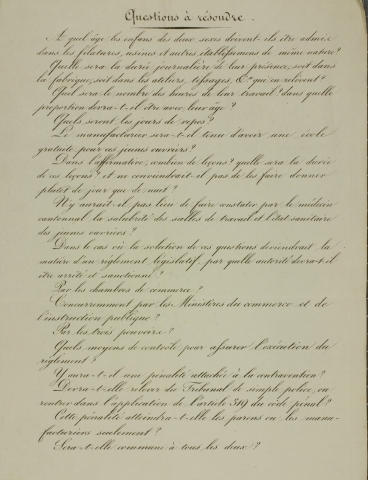 Questions à résoudre.
A quel âge les enfans des deux sexes devront-ils être admis
dans les filatures, usines et autres établissemens de même nature?
Quelle sera la durée journalière de leur présence, soit dans
la fabrique, soit dans les ateliers, tissages, &a qui en relèvent?
Quel sera le nombre des heures de leur travail? dans quelle
proportion devra-t-il être avec leur âge?
Quels seront les jours de repos?
Le manufacturier sera-t-il tenu d'avoir une école
gratuite pour ces jeunes ouvriers?
Dans l'affirmative, combien de leçons? quelle sera la durée
de ces leçons? et ne conviendrait-il pas de les faire donner
plutôt de jour que de nuit?
N'y aurait-il pas lieu de faire constater par le médecin
cantonnal la salubrité des salles de travail et l'état sanitaire
des jeunes ouvriers?
Dans le cas où la solution de ces questions deviendrait la
matière d'un règlement législatif, par quelle autorité devra-t-il
être arrêté et sanctionné?
Par les chambres de commerce?
Concurremment par les Ministères du commerce et de
l'instruction publique?
Par les trois pouvoirs?
Quels moyens de contrôle pour assurer l'exécution du
règlement?
Y aura-t-il une pénalité attachée à la contravention?
Devra-t-elle relever du Tribunal de simple police, ou
rentrer dans l'application de l'article 319 du code pénal?
Cette pénalité atteindra-t-elle les parens ou les manu-
facturiers seulement?
Sera-t-elle commune à tous les deux?